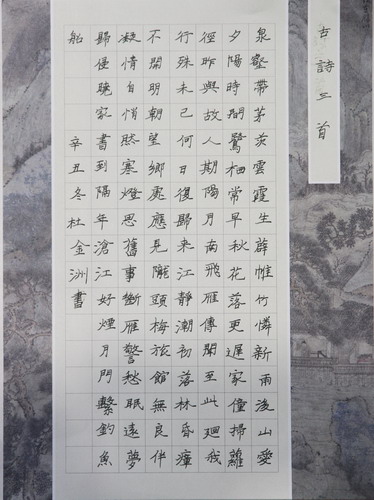 古詩三首
泉壑帶茅茨雲霞生薜帷竹憐新雨後山愛
夕陽時閒鷺栖常早秋花落更遲家僮掃蘿
徑昨與故人期陽月南飛雁傳聞至此迴我
行殊未已何日復歸來江靜潮初落林昏瘴
不開明朝望鄉處應見隴頭梅旅館無良伴
凝情自悄然寒燈思舊事斷雁警愁眠遠夢
歸侵曉家書到隔年滄江好煙月門繫釣魚
船 辛丑冬杜金洲書